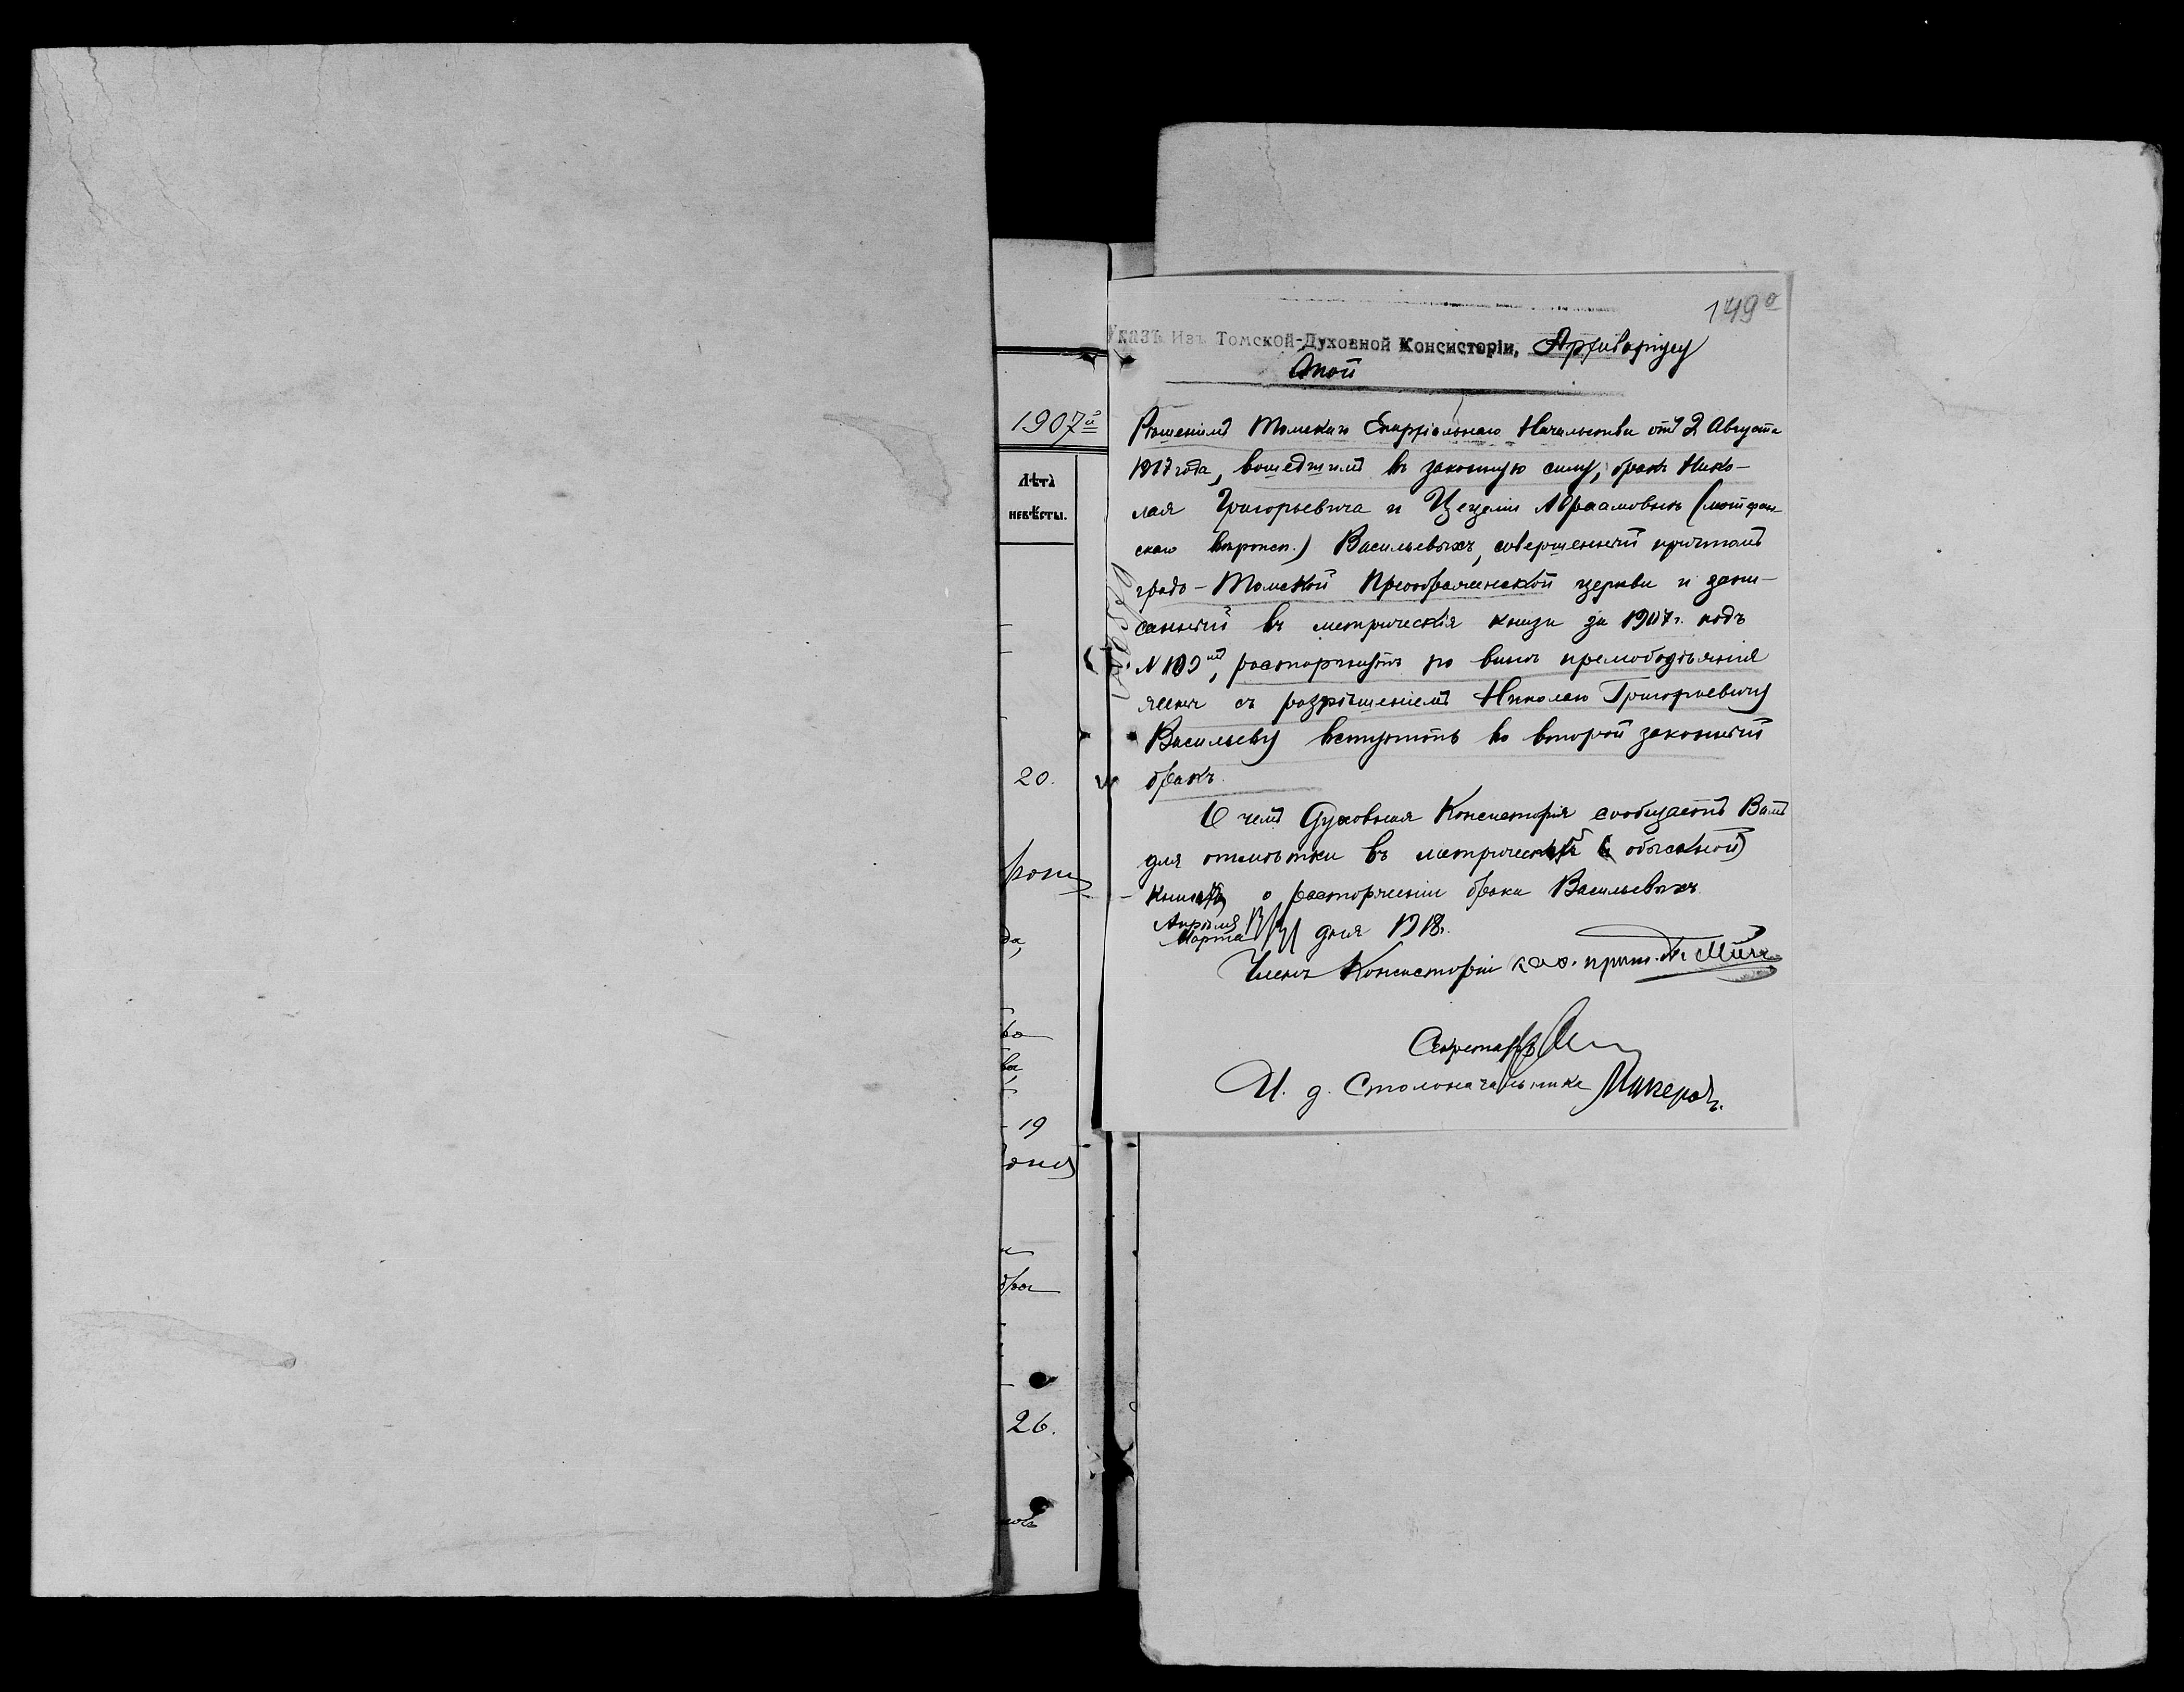 1907й
Лѣта
невѣсты.
20.
да,
19
26.
149а
Указъ Изъ Томской-Духовной Консисторіи, Архиваріусу
оной
Рѣшеніемъ Томскаго Епархіальнаго Начальства отъ 2 Августа
1917 года, вошедшимъ въ законную силу, бракъ Нико-
лая Григорьевича и Цецеліи Абраамовны (лютеран-
скаго вѣроисп.) Васильевыхъ, совершенный причтомъ
градо-Томской Преображенской церкви и запи-
санный въ метрическія книги за 1907 г. подъ
№ 109мъ, расторгнутъ по винѣ прелюбодѣянія
жены съ разрѣшеніемъ Николаю Григорьевичу
Васильеву вступить во второй законный
бракъ.
О чемъ Духовная Консисторія сообщаетъ Вамъ
для отмѣтки въ метрической обыскной)
книгѣ о расторженіи брака Васильевыхъ.
Апрѣля
Марта дня 1918 г.
Членъ Консисторіи каѳ. прот.
Секретарь
И. д. Столоначальника